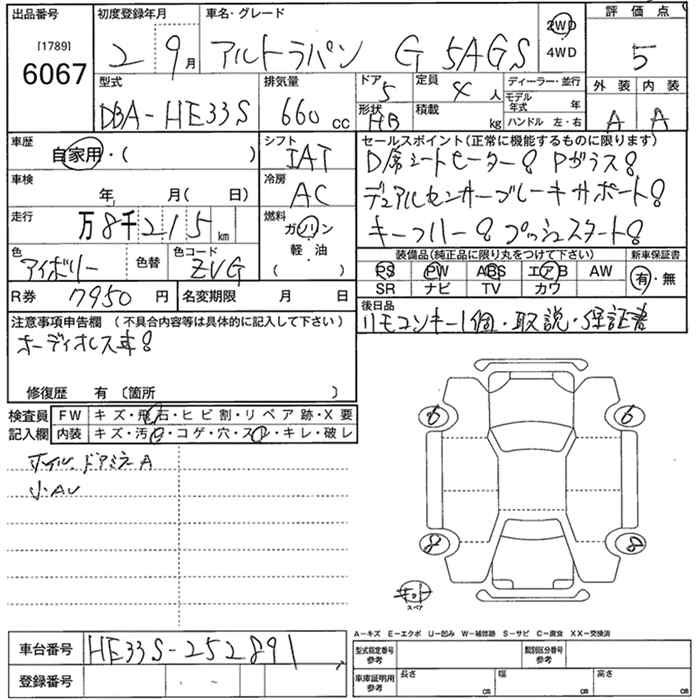 出品番号
[1789]
6067
初度登録年月
2 9月
車名・グレード
アルトラパン G 5AGS
2WD
4WD
評価点
5
型式
DBA-HE33S
排気量
660cc
ドア
5
定員
4人
形状
HB
積載
kg
ディーラー・並行
モデル年式 年
ハンドル 左・右
外装 内装
A A
車歴
自家用・( )
シフト
IAT
車検
年 月( 日)
冷房
AC
走行
万8千215km
燃料
ガソリン
軽・油
( )
色
アイボリー
色替
色コード
ZVG
R券
7950円
名変期限 月 日
セールスポイント(正常に機能するものに限ります)
D席シートヒーター! Pガラス!
デュアルセンサーブレーキサポート!
キーフリー! プッシュスタート!
装備品(純正品に限り丸をつけて下さい)
新車保証書
PS PW ABS エアB AW
SR ナビ TV カワ
有・無
後日品
リモコンキー1個・取説・保証書
注意事項申告欄 (不具合内容等は具体的に記入して下さい)
オーディオレス車!
修復歴 有 〔箇所 〕
検査員
記入欄
FW キズ・飛石・ヒビ割・リペア跡・X要
内装 キズ・汚・コゲ・穴・スレ・キレ・破レ
ホイル、ドアミラーA
小AU
6 6
8 8
キット
スペア
A-キズ E-エクボ U-凹み W-補修跡 S-サビ C-腐食 XX-交換済
車台番号
HE33S-252891
登録番号
型式指定番号
参考
類別区分番号
参考
車庫証明用
参考
長さ cm
幅 cm
高さ cm